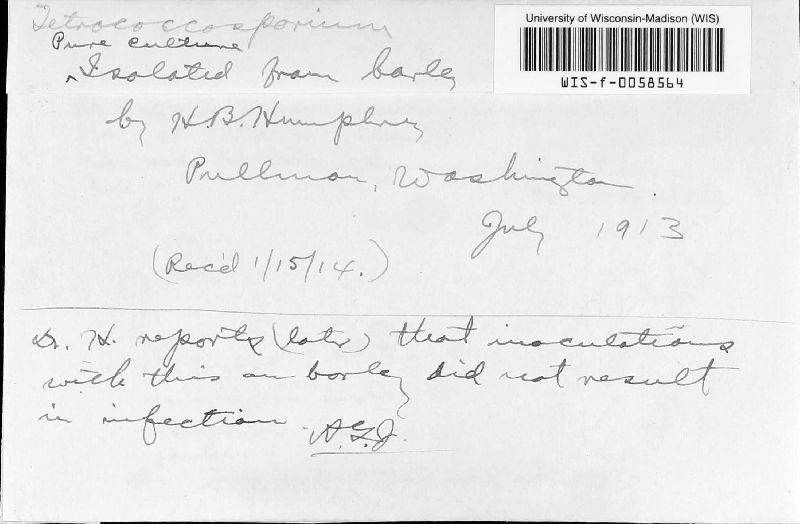 Tetracoccosporium
University of Wisconsin-Madison (WIS)
WIS-f-0058564
Pure culture
^Isolated from barley
by H.B. Humphrey
Pullman, Washington
July 1913
(Rec'd 1/15/14.)
Dr. H. reports (later) that inoculations
with this on barley did not result
in infection. A.G.J.